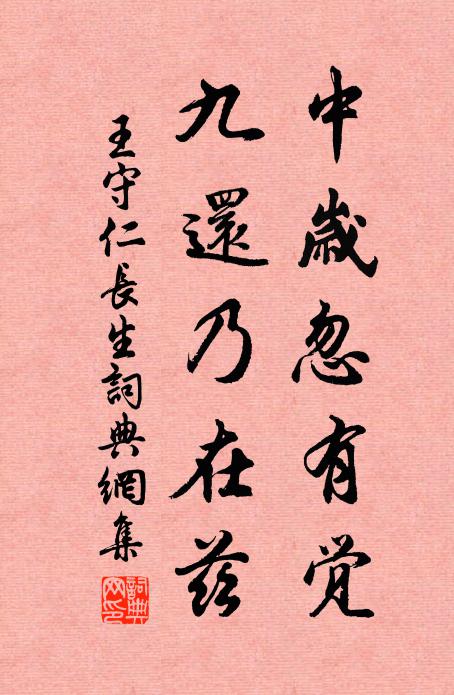 中歲忽有覺
九還乃在茲
王守仁長生詞典網集
詞典網印